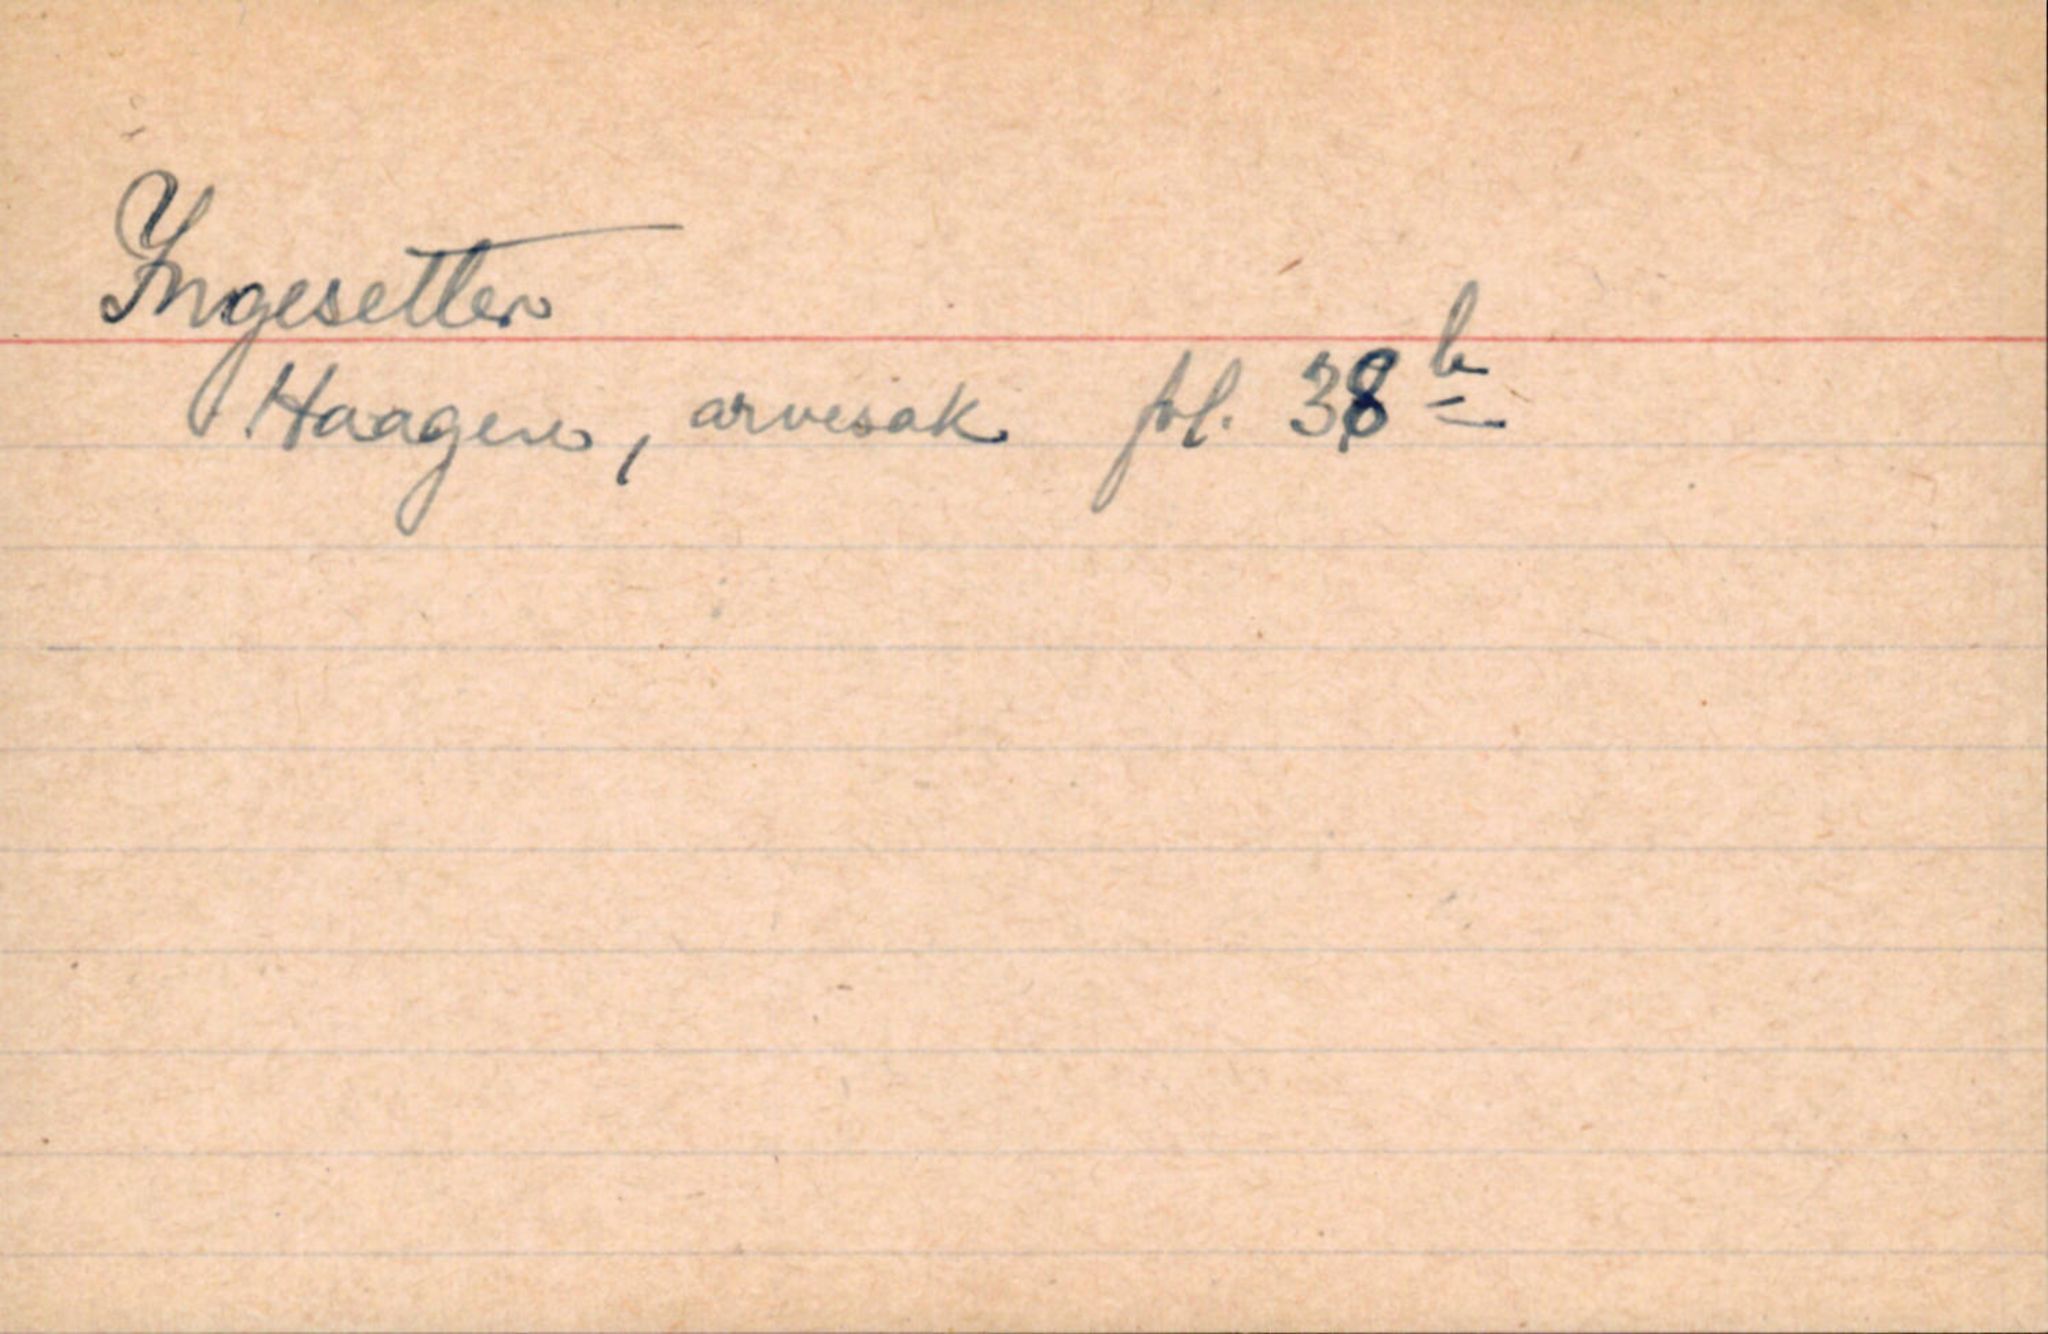 Ingesetter
Haagen, arvesak fol. 38 b